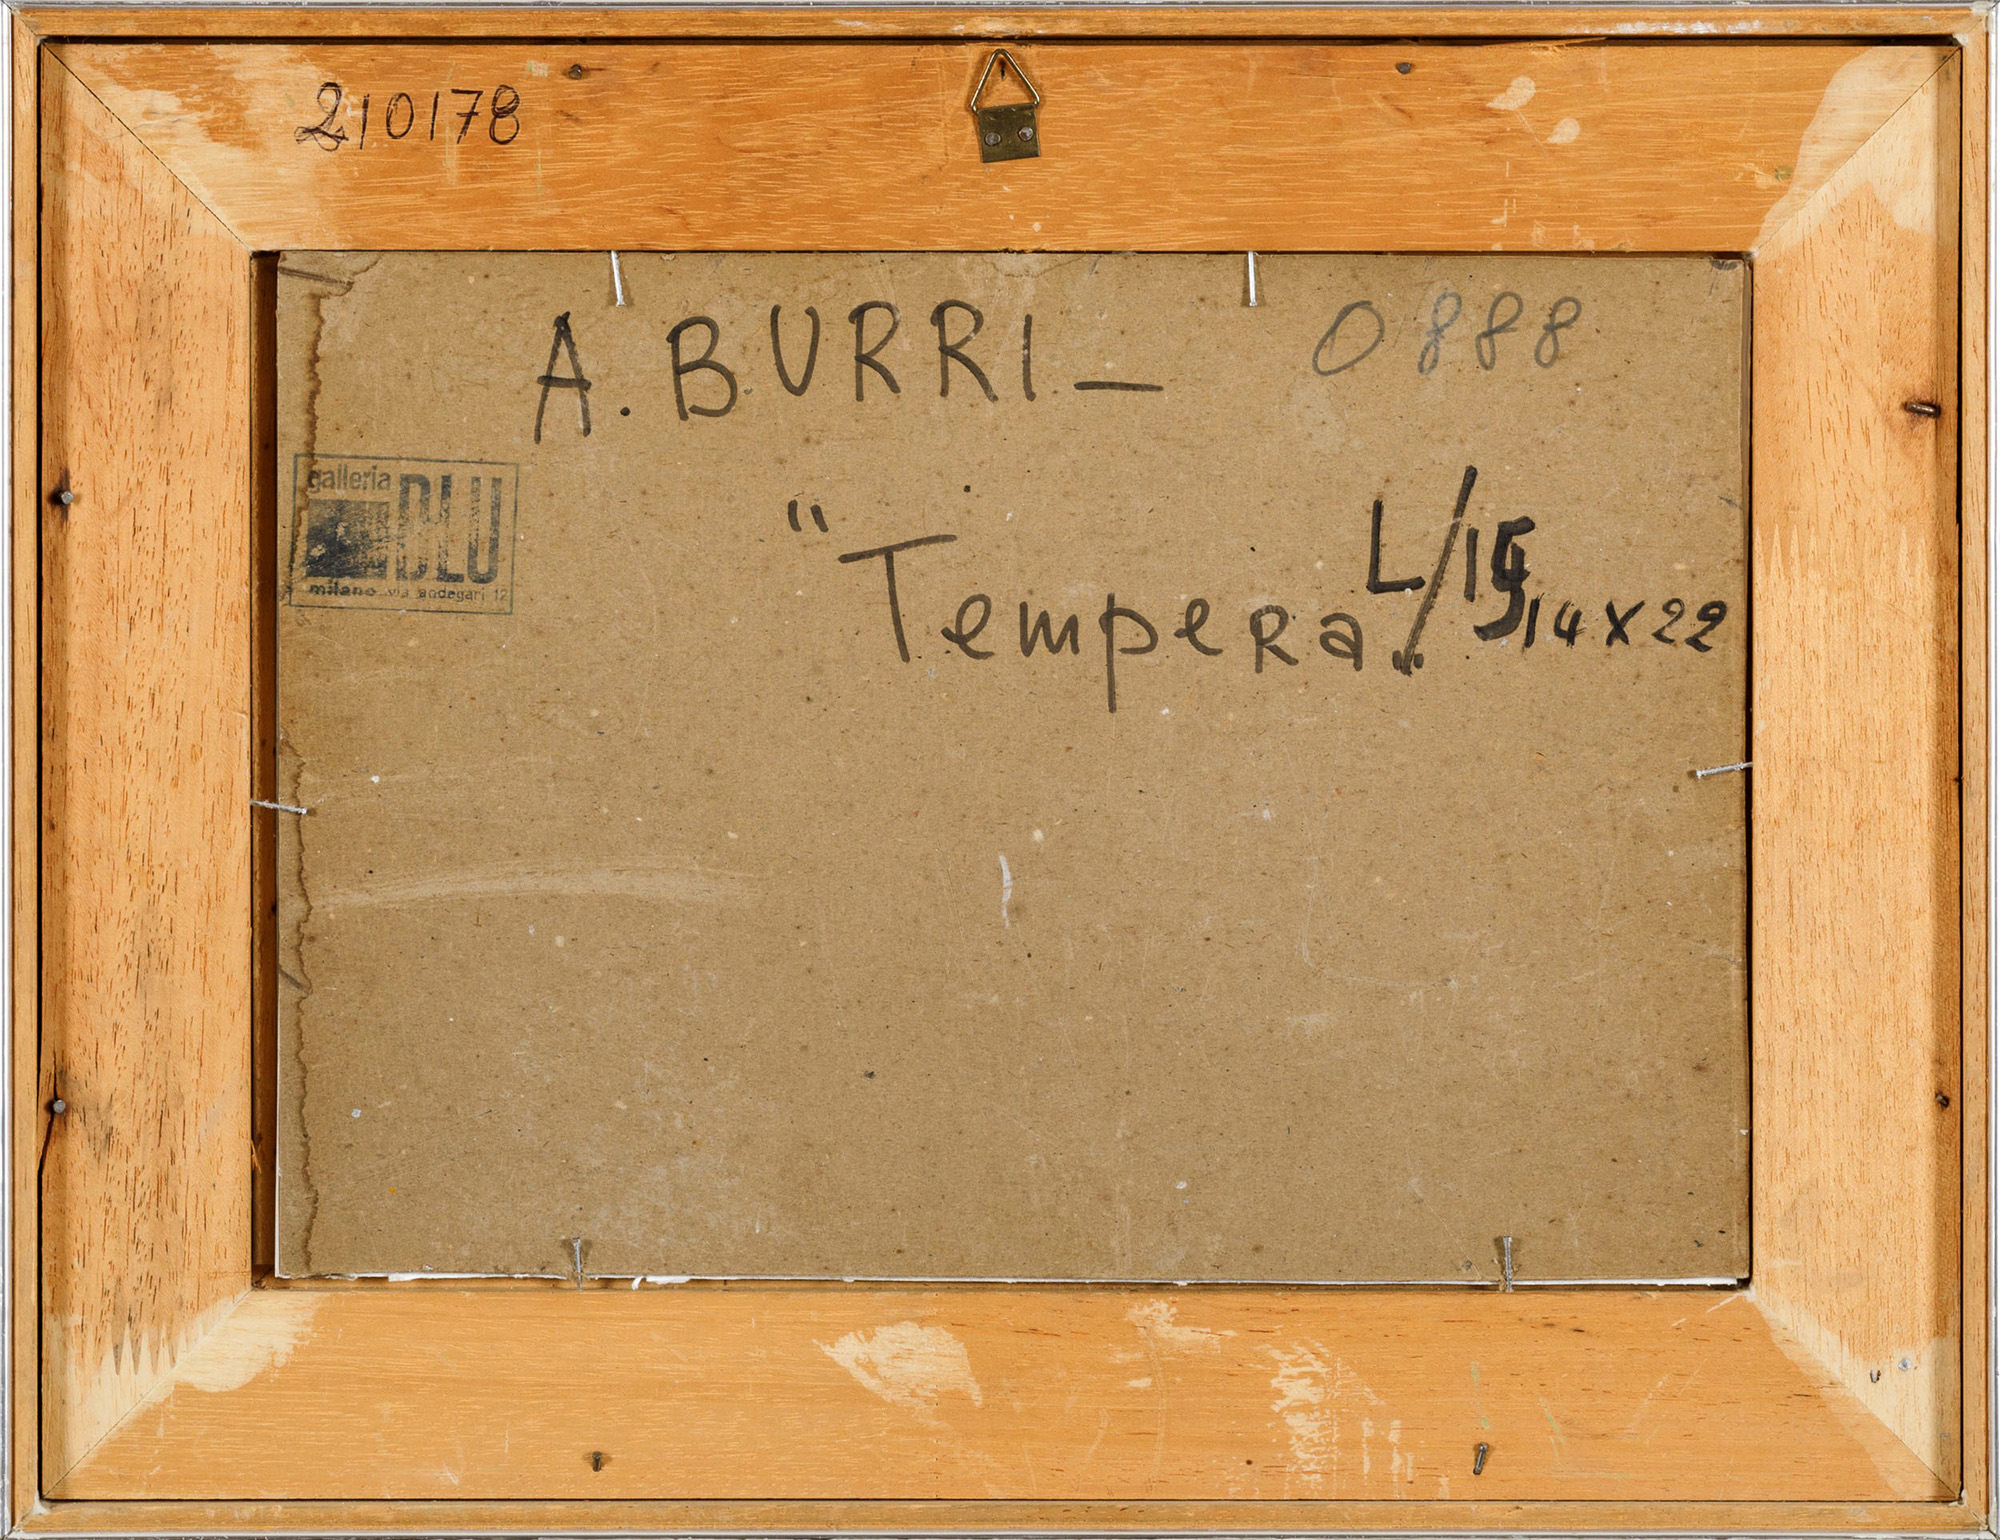 210178
A. BURRI — 0888
galleria
BLU
milano via andegari 12
"Tempera" L/15
14 x 22